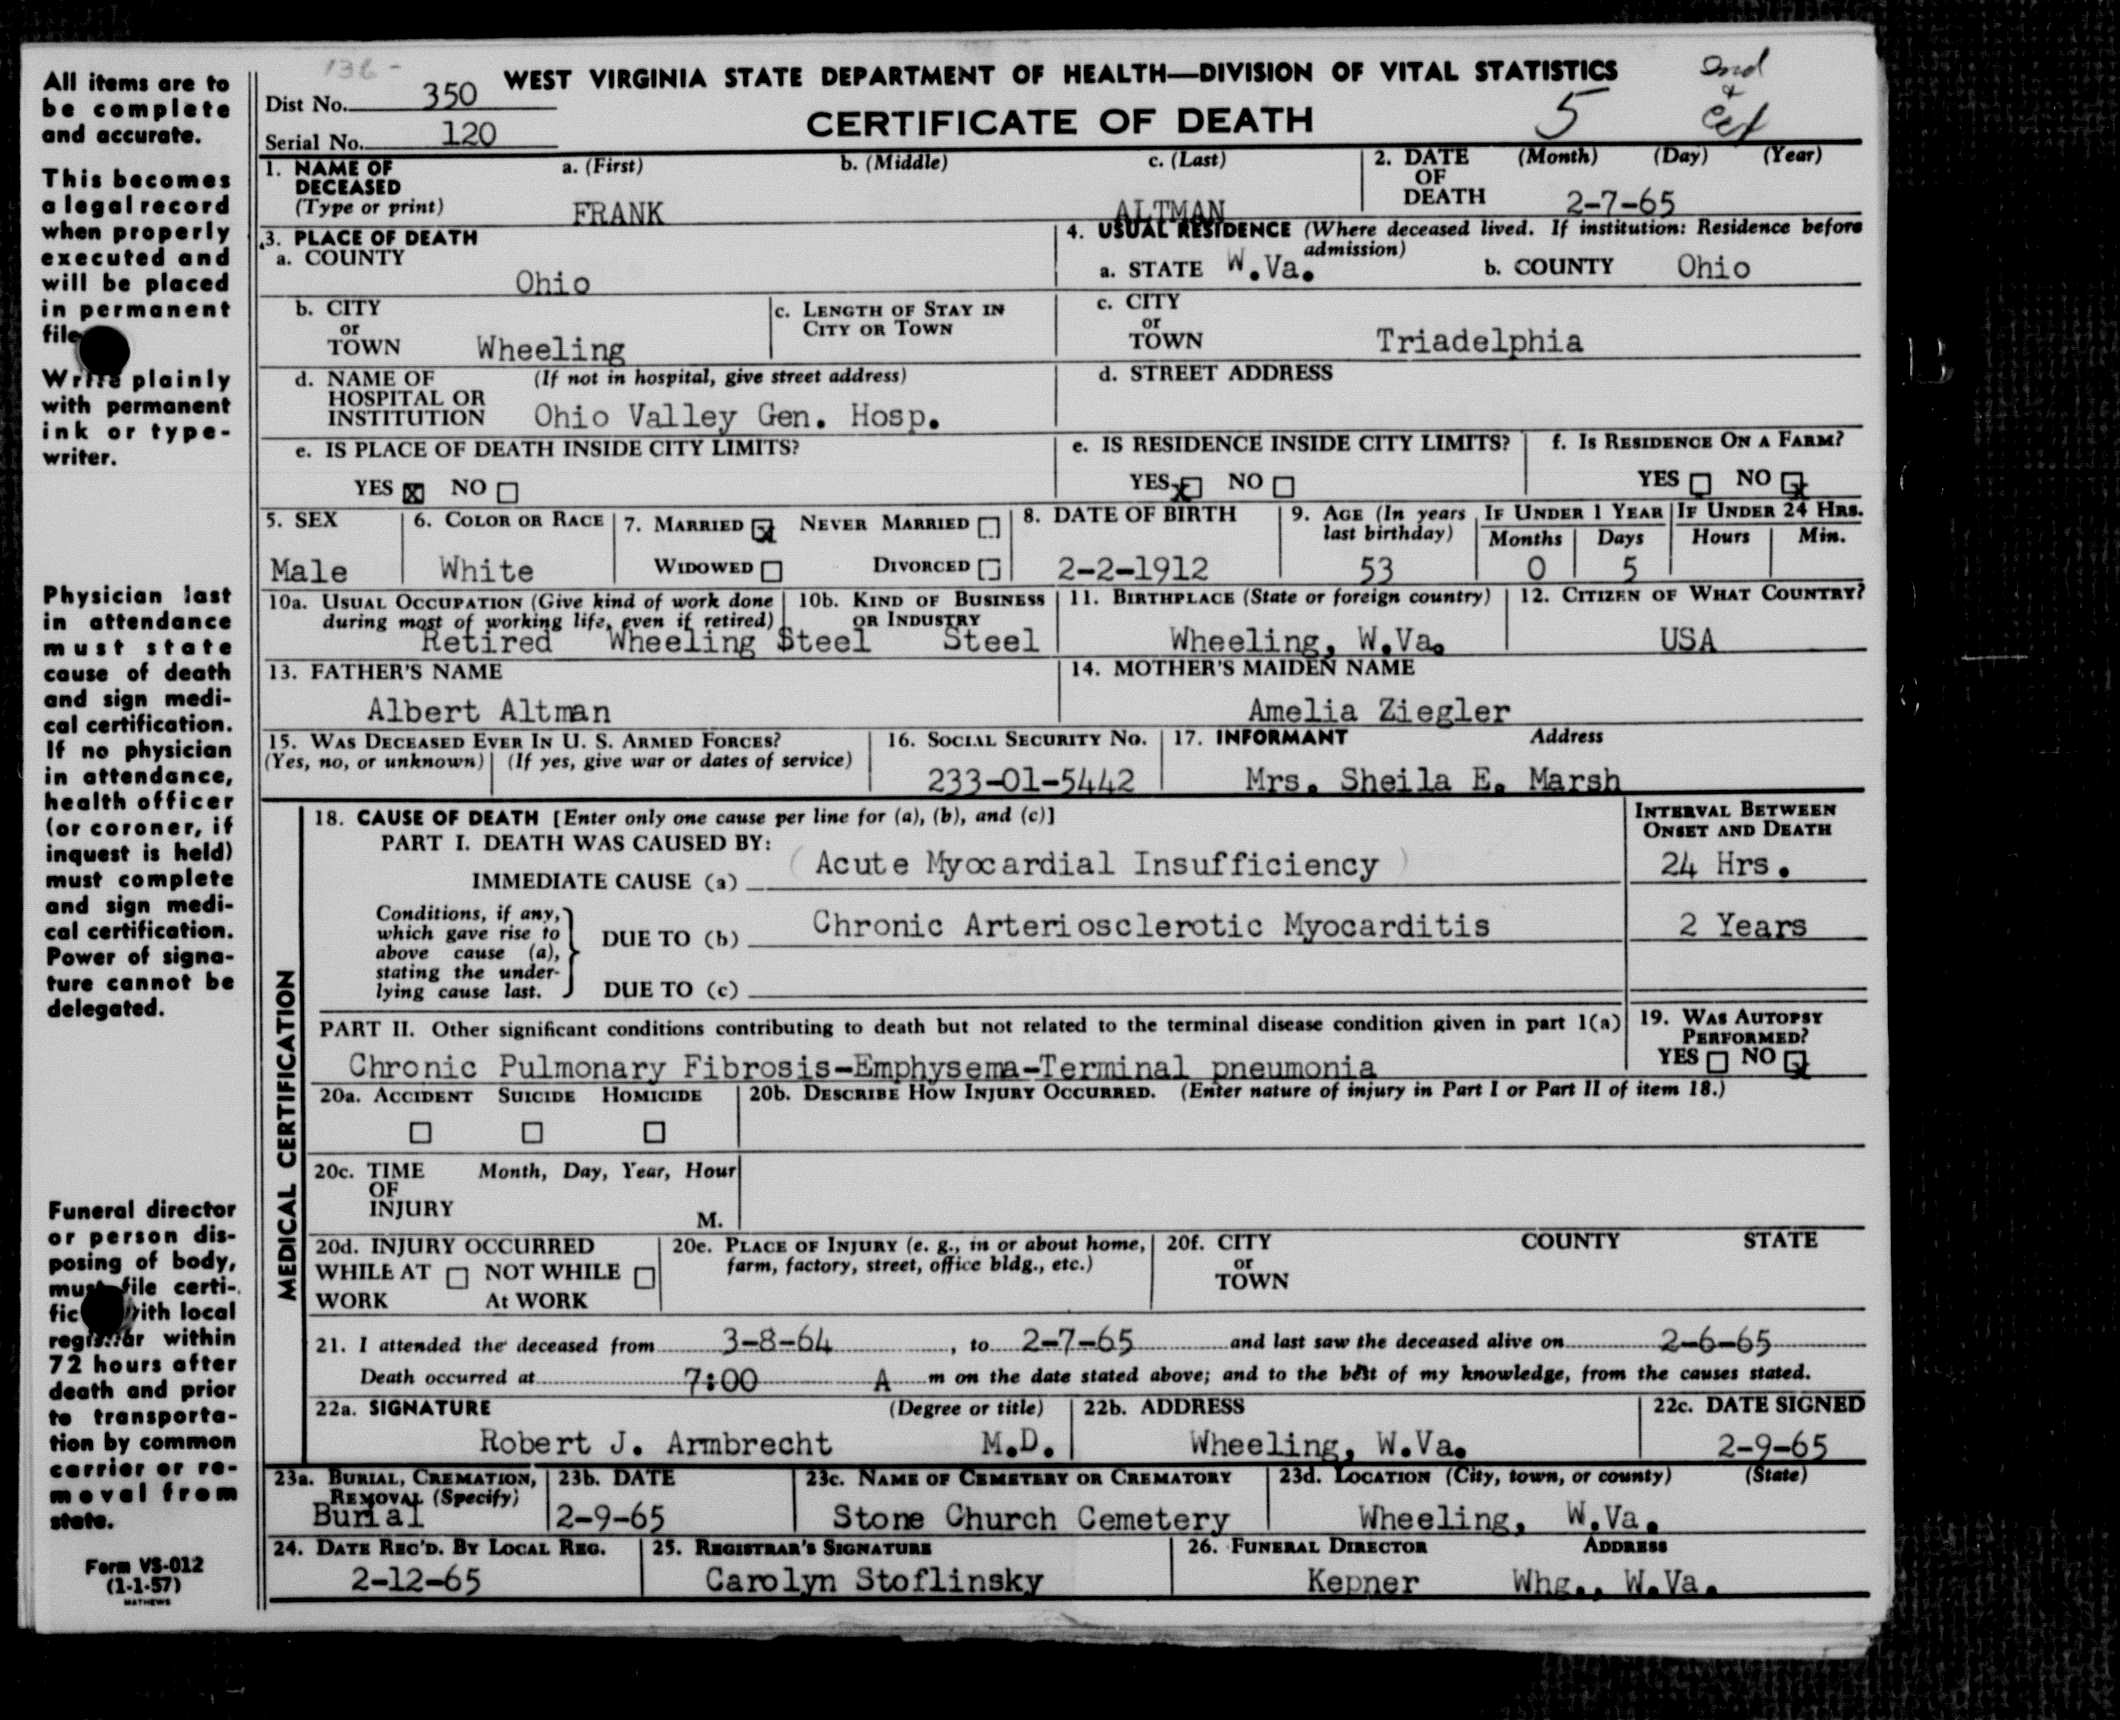 All items are to
be complete
and accurate.
This becomes
a legal record
when properly
executed and
will be placed
in permanent
file
Write plainly
with permanent
ink or type-
writer.
Physician last
in attendance
must state
cause of death
and sign medi-
cal certification.
If no physician
in attendance,
health officer
(or coroner, if
inquest is held)
must complete
and sign medi-
cal certification.
Power of signa-
ture cannot be
delegated.
Funeral director
or person dis-
posing of body,
must file certi-
with local
registrar within
72 hours after
death and prior
to transporta-
tion by common
carrier or re-
moval from
state.
Form VS-012
(1-1-57)
MATHEWS
136-
WEST VIRGINIA STATE DEPARTMENT OF HEALTH—DIVISION OF VITAL STATISTICS
Dist No. 350
CERTIFICATE OF DEATH 5
Serial No. 120
1. NAME OF DECEASED (Type or print) a. (First) b. (Middle) c. (Last)
FRANK ALTMAN
2. DATE OF DEATH (Month) (Day) (Year)
2-7-65
3. PLACE OF DEATH
a. COUNTY
Ohio
4. USUAL RESIDENCE (Where deceased lived. If institution: Residence before admission)
a. STATE W.Va. b. COUNTY Ohio
b. CITY or TOWN Wheeling
c. LENGTH OF STAY IN CITY OR TOWN
c. CITY or TOWN Triadelphia
d. NAME OF HOSPITAL OR INSTITUTION (If not in hospital, give street address)
Ohio Valley Gen. Hosp.
d. STREET ADDRESS
e. IS PLACE OF DEATH INSIDE CITY LIMITS?
YES X NO
e. IS RESIDENCE INSIDE CITY LIMITS?
YES X NO
f. IS RESIDENCE ON A FARM?
YES NO X
5. SEX
Male
6. COLOR OR RACE
White
7. MARRIED X NEVER MARRIED
WIDOWED DIVORCED
8. DATE OF BIRTH
2-2-1912
9. AGE (In years last birthday)
53
IF UNDER 1 YEAR
Months Days
0 5
IF UNDER 24 HRS.
Hours Min.
10a. USUAL OCCUPATION (Give kind of work done during most of working life, even if retired)
Retired Wheeling Steel
10b. KIND OF BUSINESS OR INDUSTRY
Steel
11. BIRTHPLACE (State or foreign country)
Wheeling, W.Va.
12. CITIZEN OF WHAT COUNTRY?
USA
13. FATHER'S NAME
Albert Altman
14. MOTHER'S MAIDEN NAME
Amelia Ziegler
15. WAS DECEASED EVER IN U. S. ARMED FORCES?
(Yes, no, or unknown) (If yes, give war or dates of service)
16. SOCIAL SECURITY NO.
233-01-5442
17. INFORMANT Address
Mrs. Sheila E. Marsh
MEDICAL CERTIFICATION
18. CAUSE OF DEATH [Enter only one cause per line for (a), (b), and (c)]
INTERVAL BETWEEN ONSET AND DEATH
PART I. DEATH WAS CAUSED BY:
IMMEDIATE CAUSE (a) (Acute Myocardial Insufficiency) 24 Hrs.
Conditions, if any, which gave rise to above cause (a), stating the under-lying cause last.
DUE TO (b) Chronic Arteriosclerotic Myocarditis 2 Years
DUE TO (c)
PART II. Other significant conditions contributing to death but not related to the terminal disease condition given in part 1(a)
Chronic Pulmonary Fibrosis-Emphysema-Terminal pneumonia
19. WAS AUTOPSY PERFORMED?
YES NO X
20a. ACCIDENT SUICIDE HOMICIDE
20b. DESCRIBE HOW INJURY OCCURRED. (Enter nature of injury in Part I or Part II of item 18.)
20c. TIME OF INJURY Month, Day, Year, Hour
M.
20d. INJURY OCCURRED
WHILE AT WORK NOT WHILE At WORK
20e. PLACE OF INJURY (e. g., in or about home, farm, factory, street, office bldg., etc.)
20f. CITY or TOWN COUNTY STATE
21. I attended the deceased from 3-8-64, to 2-7-65 and last saw the deceased alive on 2-6-65
Death occurred at 7:00 A m on the date stated above; and to the best of my knowledge, from the causes stated.
22a. SIGNATURE (Degree or title)
Robert J. Armbrecht M.D.
22b. ADDRESS
Wheeling, W.Va.
22c. DATE SIGNED
2-9-65
23a. BURIAL, CREMATION, REMOVAL (Specify)
Burial
23b. DATE
2-9-65
23c. NAME OF CEMETERY OR CREMATORY
Stone Church Cemetery
23d. LOCATION (City, town, or county) (State)
Wheeling, W.Va.
24. DATE REC'D. BY LOCAL REG.
2-12-65
25. REGISTRAR'S SIGNATURE
Carolyn Stoflinsky
26. FUNERAL DIRECTOR ADDRESS
Kepner Whg., W.Va.